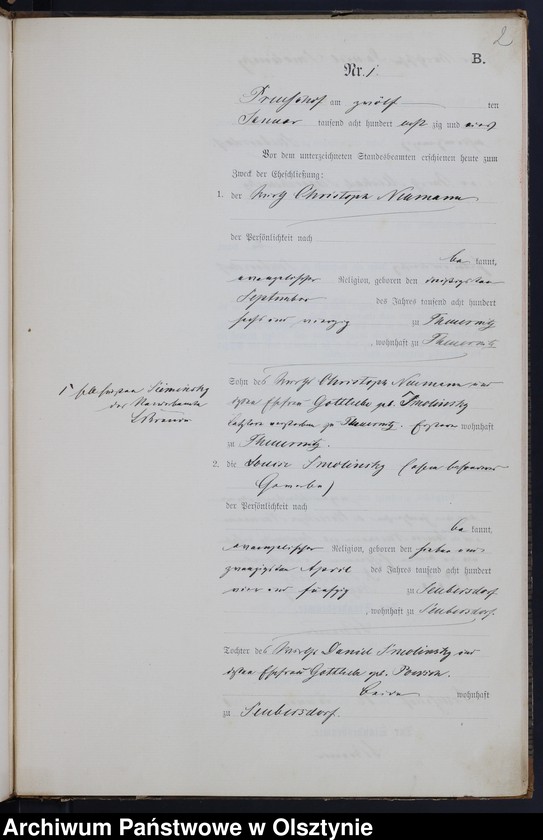 2
B.
Nr. 1.
am zwölf ten
Januar tausend acht hundert acht zig und eins
Vor dem unterzeichneten Standesbeamten erschienen heute zum
Zweck der Eheschließung:
1. der Wirth Christoph Neumann
der Persönlichkeit nach
be kannt,
evangelischer Religion, geboren den dreißigsten
September des Jahres tausend acht hundert
sechs und vierzig zu Theuernitz
, wohnhaft zu Theuernitz
Sohn des Wirths Christoph Neumann und
dessen Ehefrau Gottliebe geb. Smolinsky
letztere verstorben zu Theuernitz. Ersterer wohnhaft
zu Theuernitz.
2. die Louise Smolinsky (ohne besonderes
Gewerbe)
der Persönlichkeit nach
be kannt,
evangelischer Religion, geboren den sieben und
zwanzigsten April des Jahres tausend acht hundert
vier und fünfzig zu Seubersdorf
, wohnhaft zu Seubersdorf.
Tochter des Wirths Daniel Smolinsky und
dessen Ehefrau Gottliebe geb.
beide wohnhaft
zu Seubersdorf.
der Standesbeamte
Archiwum Państwowe w Olsztynie